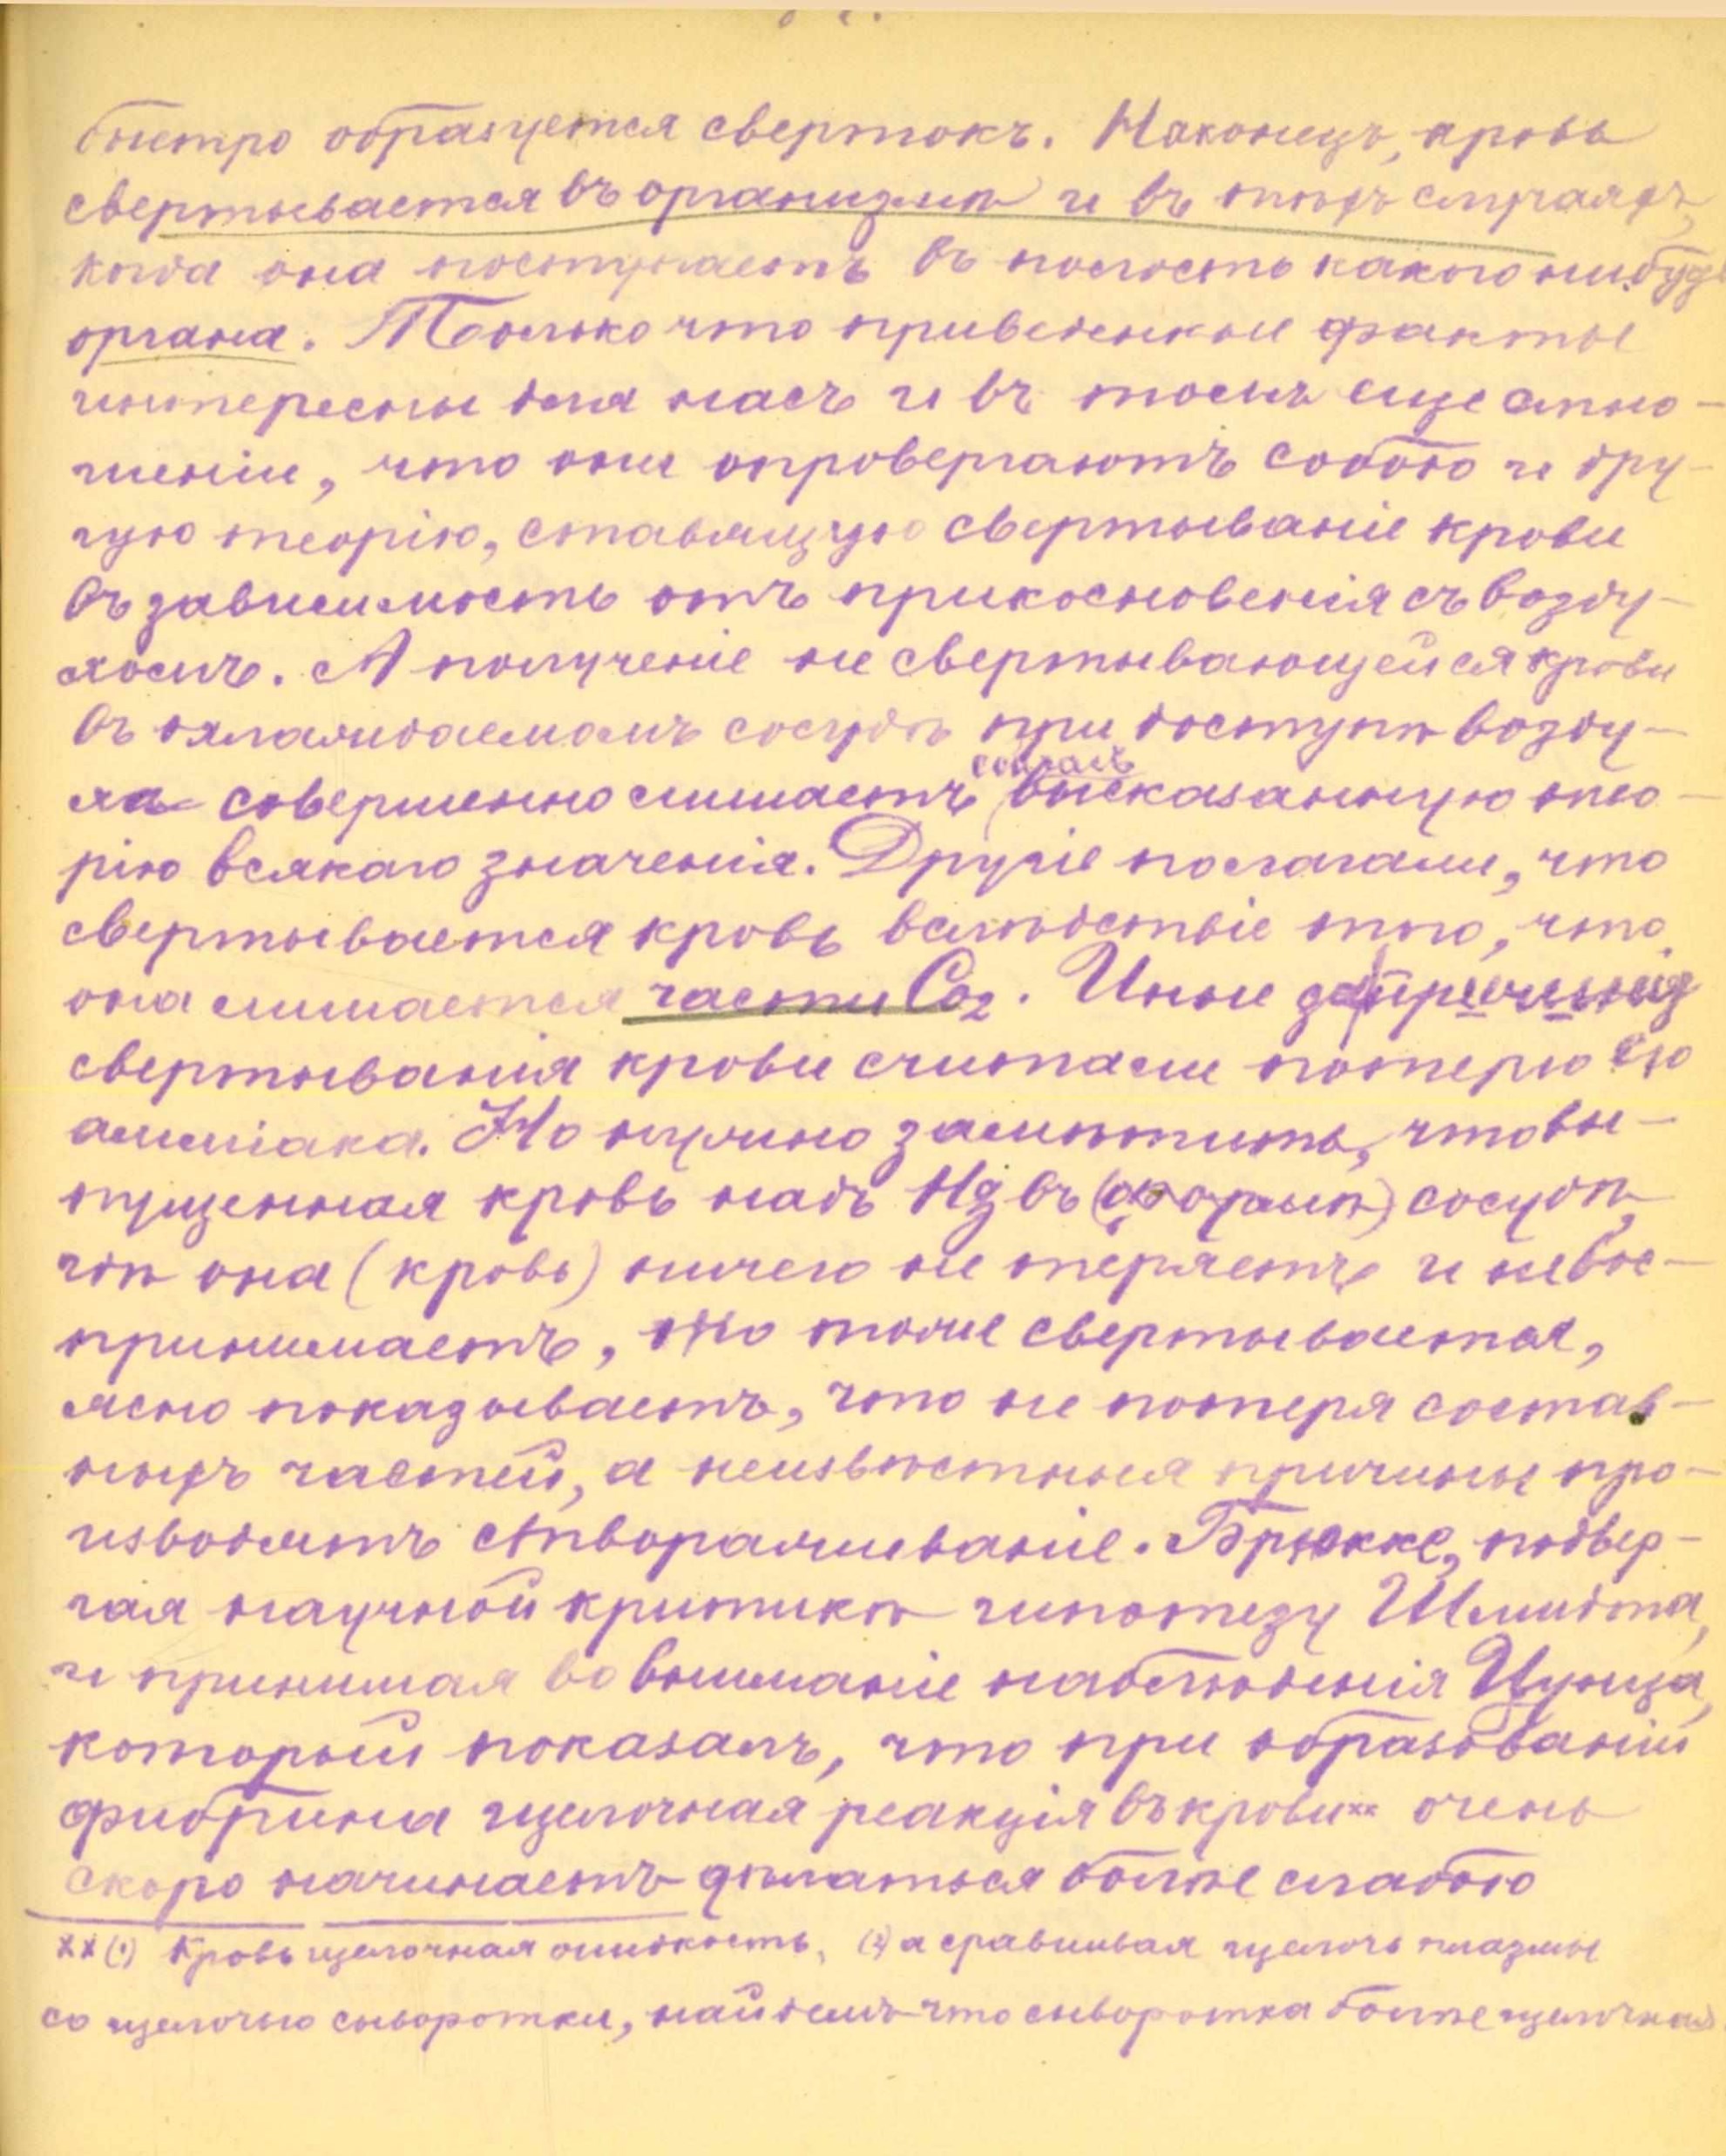 быстро образуется свертокъ. Наконецъ, кровь
свертывается въ организмѣ и въ тѣхъ случаяхъ,
когда она поступаетъ въ полость какого нибудь
органа. Только что приведенные факты
интересны для насъ и въ томъ еще отно-
шеніи, что они опровергаютъ собою и дру-
гую теорію, ставящую свертываніе крови
въ зависимость отъ прикосновенія съ возду-
хомъ. А полученіе не свертывающейся крови
въ охлаждаемомъ сосудѣ при доступѣ возду-
сейчасъ
ха совершенно лишаетъ высказанную тео-
рію всякаго значенія. Другіе полагали, что
свертывается кровь вслѣдствіе того, что
она лишается части Co2. Иные за
свертыванія крови считали потерю ею
амміака. Но нужно замѣтить, что вы-
пущенная кровь надъ Hg въ сосудѣ,
гдѣ она (кровь) ничего не теряетъ и не вос-
принимаетъ, но тоже свертывается,
ясно показываетъ, что не потеря состав-
ныхъ частей, а неизвѣстныя причины про-
изводятъ створаживаніе. Брюкке, подвер-
гая научной критикѣ гипотезу Шмидта,
и принимая во вниманіе наблюденія Цунца,
который показалъ, что при образованіи
фибрина щелочная реакція въ крови** очень
скоро начинаетъ дѣлаться болѣе слабою
** (1) Кровь щелочная жидкость, (2) а сравнивая щелочь плазмы
со щелочью сыворотки, найдемъ что сыворотка болѣе щелочная